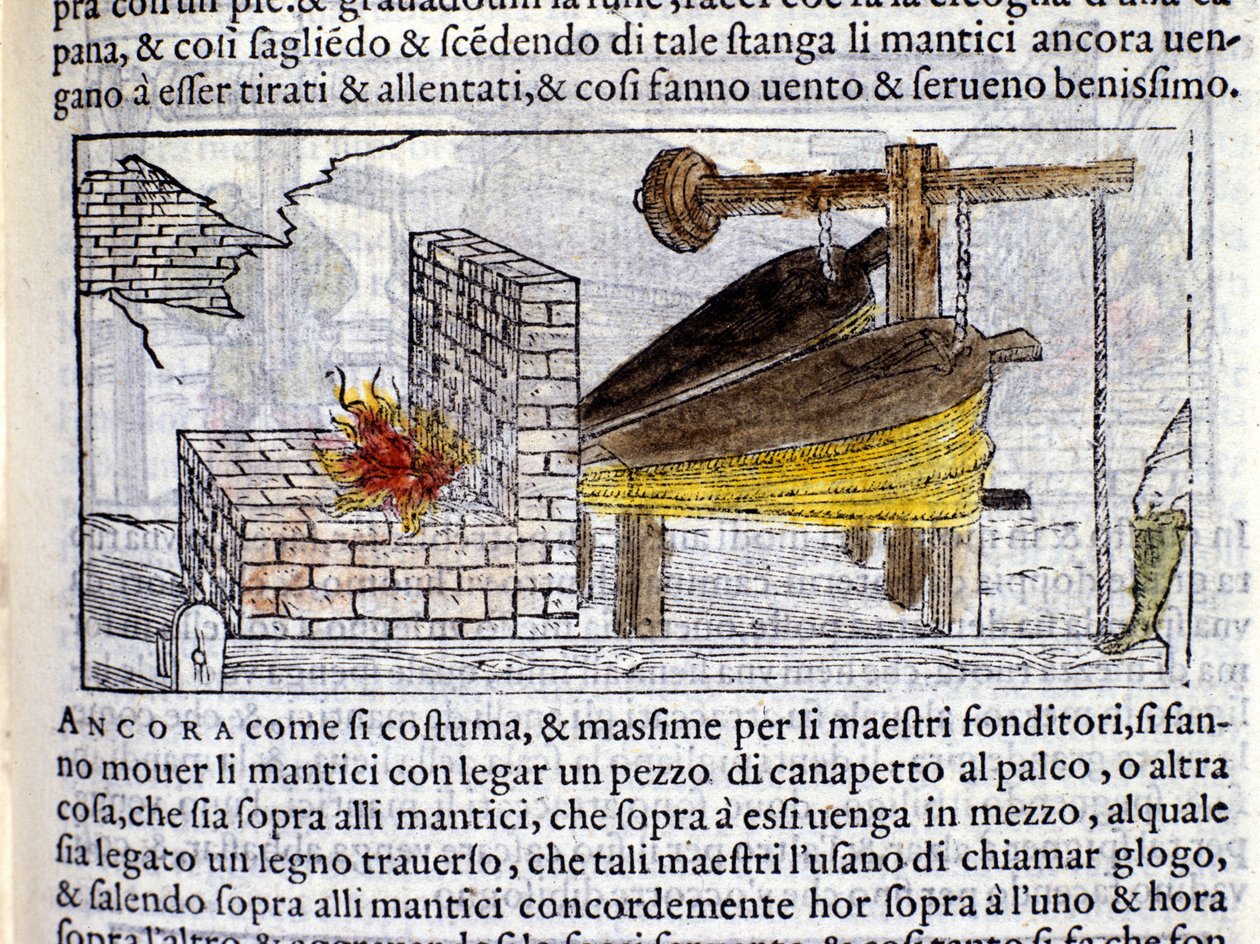 pana, & cosi sagliẽdo & scẽdendo di tale stanga li mantici ancora uen-
gano à esser tirati & allentati, & cosi fanno uento & serueno benissimo.
ANCORA come si costuma, & massime per li maestri fonditori, si fan-
no mouer li mantici con legar un pezzo di canapetto al palco, o altra
cosa, che sia sopra alli mantici, che sopra à essi uenga in mezzo, alquale
sia legato un legno trauerso, che tali maestri l'usano di chiamar glogo,
& salendo sopra alli mantici concordemente hor sopra à l'uno & hora